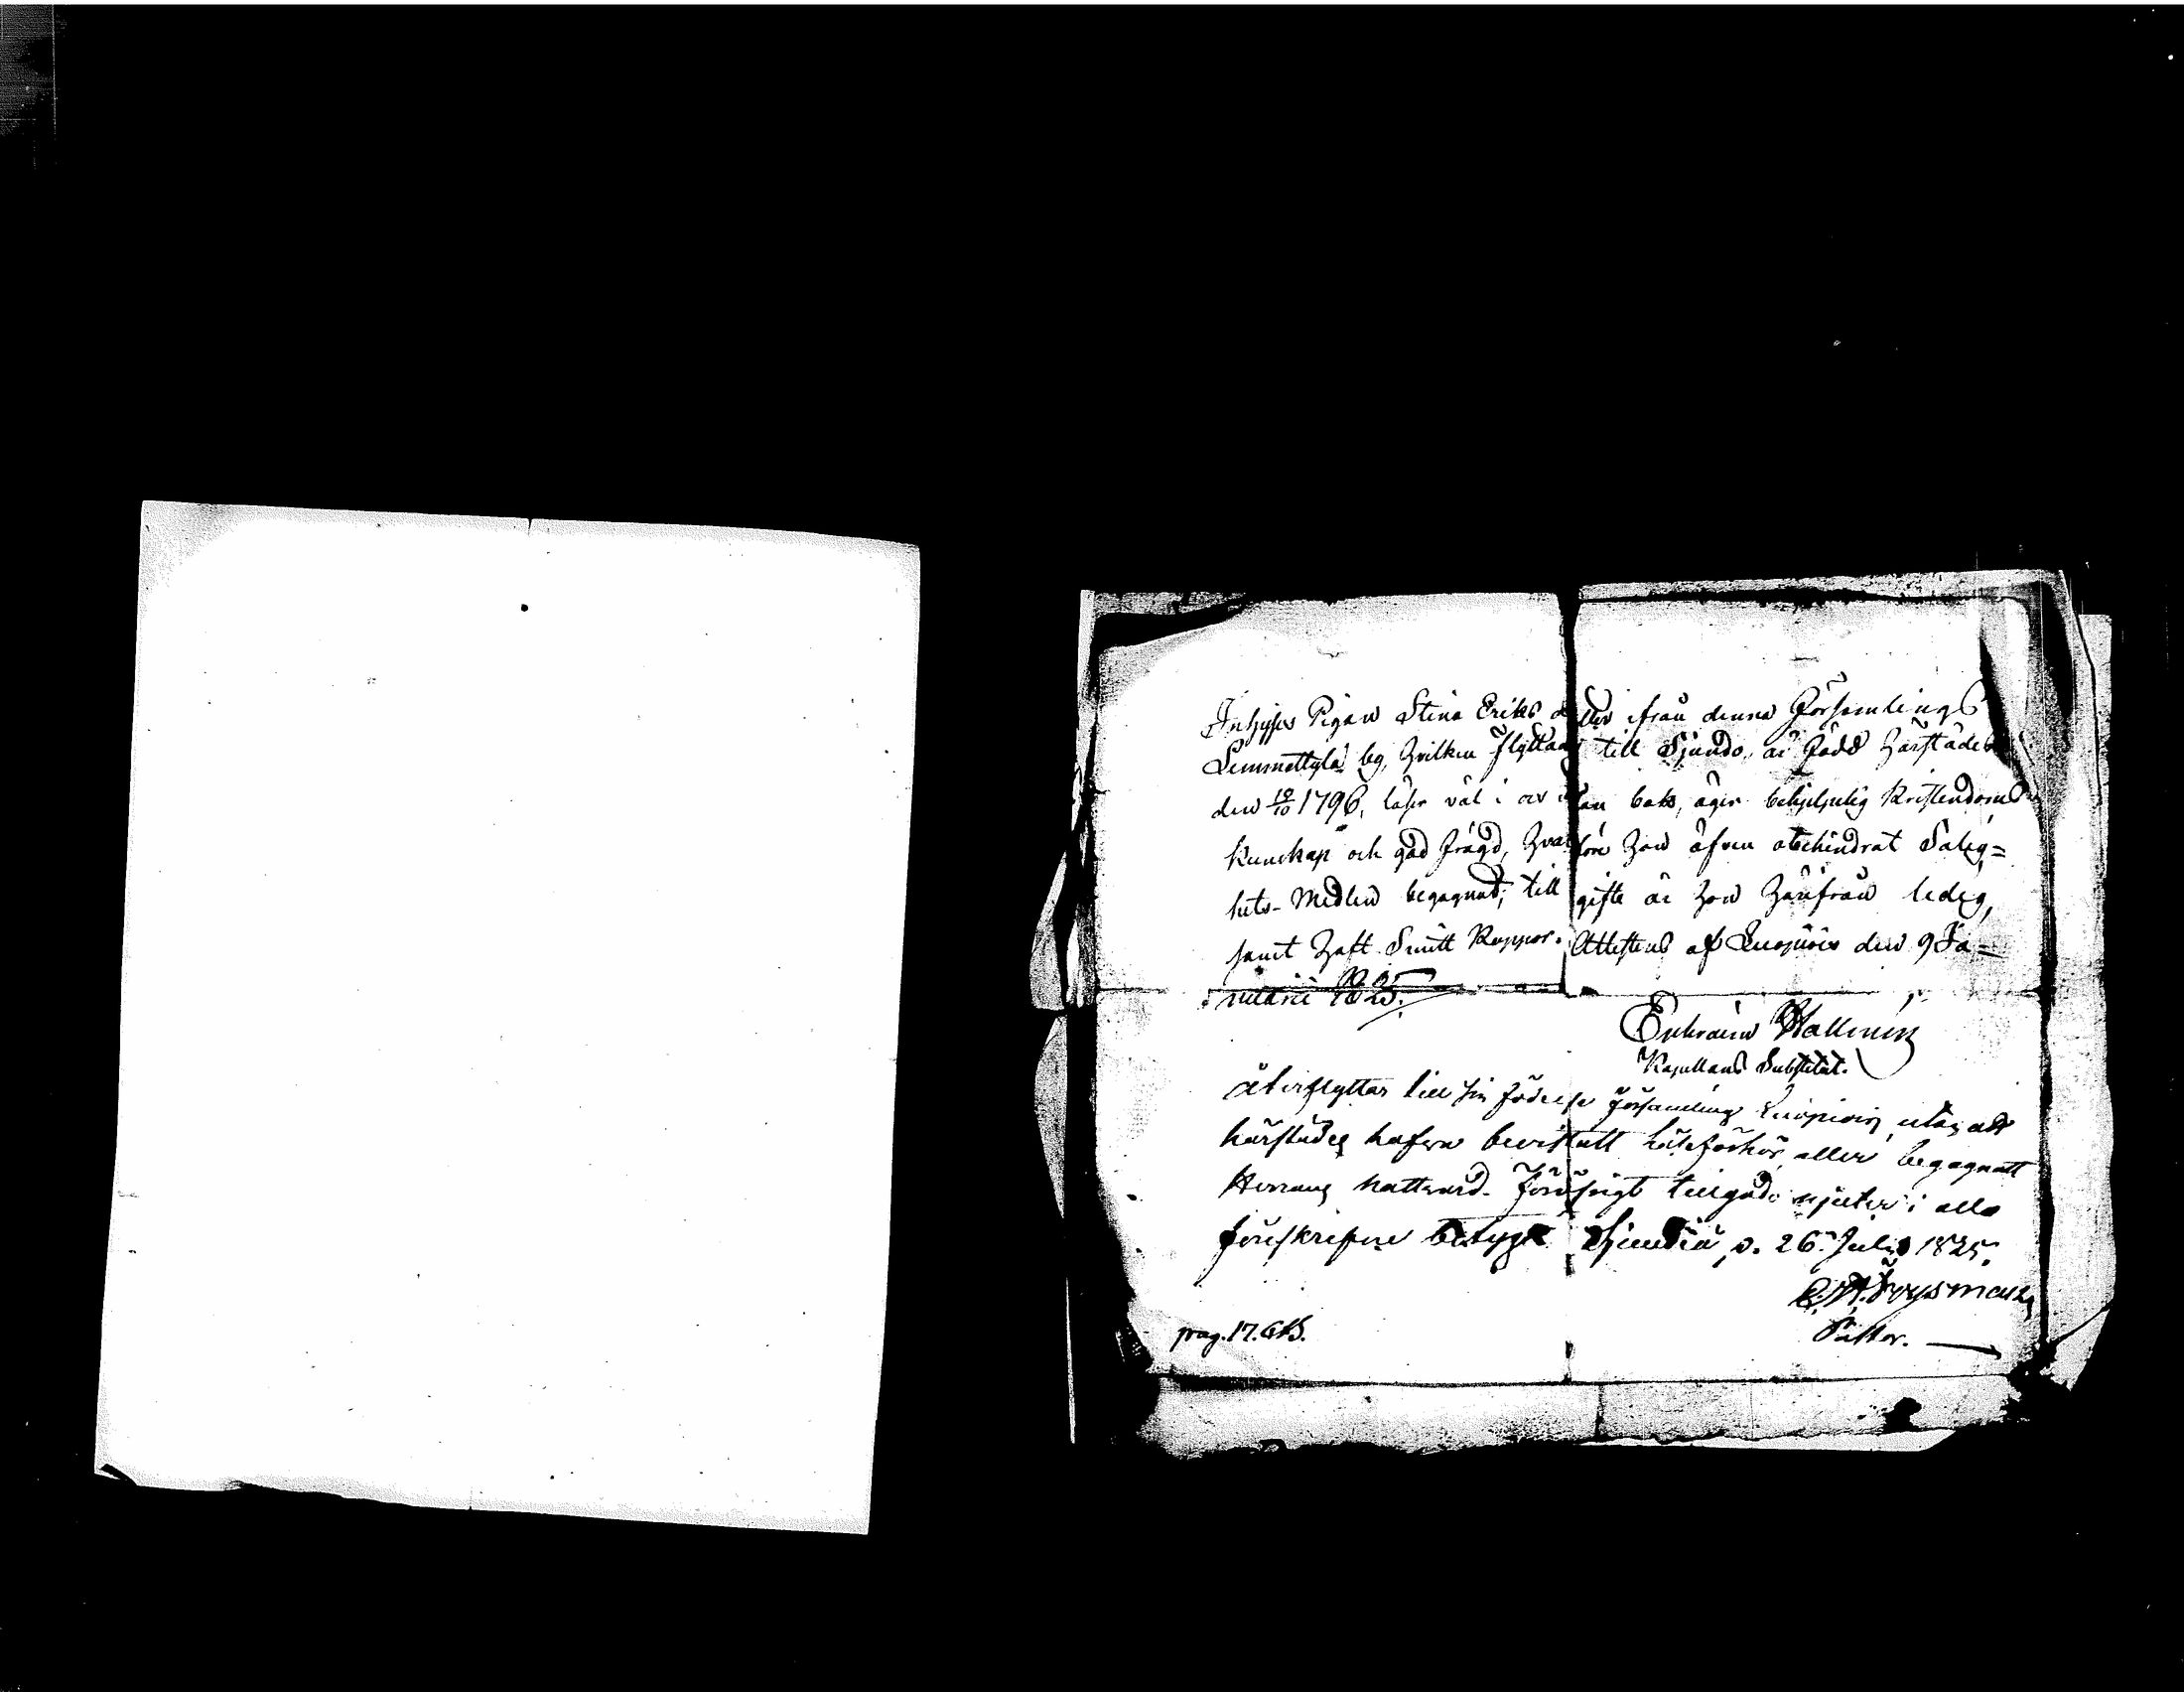 Inhyses Pigan Stina Eriks dotter ifrån denna Församlings
Lemmettylä by, hvilken flyttar till Sjundo, är född härstädes
den 10/10 1796, läser väl i och utan bok, äger behjelplig Kristendoms
kunskap och god frägd, hvarföre hon äfven obehindrat Salig=
hets-Medlen begagnat; till gifte är hon härifrån ledig,
samt haft Smitt Koppor. Attesteras af Lugnvis den 9 Ja=
nuarii 1825.
Ephraim Wallenius
Kapellans Substitut.
Återflyttar till sin födelse församling utan att
härstädes hafva bevistatt Läseförhör eller begagnatt
Herrans nattvard. Föröfrigt tillgodo njuter i alla
föreskrifne betyg Sjundeå, d. 26 Julii 1825.
Pastor.
pag. 17.